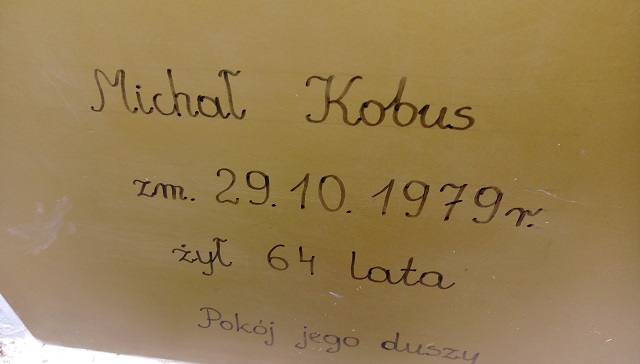 Michał Kobus
zm. 29.10.1979r.
żył 64 lata
Pokój jego duszy